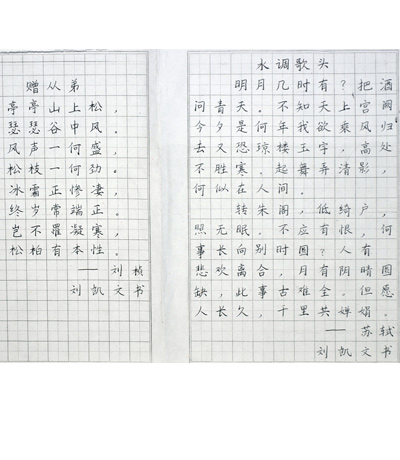 赠从弟
亭亭山上松，
瑟瑟谷中风。
风声一何盛，
松枝一何劲。
冰霜正惨凄，
终岁常端正。
岂不罹凝寒，
松柏有本性。
——刘桢
刘凯文书
水调歌头
明月几时有？把酒
问青天。不知天上宫阙
今夕是何年我欲乘风归
去又恐琼楼玉宇，高处
不胜寒。起舞弄清影，
何似在人间。
转朱阁，低绮户，
照无眠。不应有恨，何
事长向别时圆？人有
悲欢离合，月有阴晴圆
缺，此事古难全。但愿
人长久，千里共婵娟。
——苏轼
刘凯文书